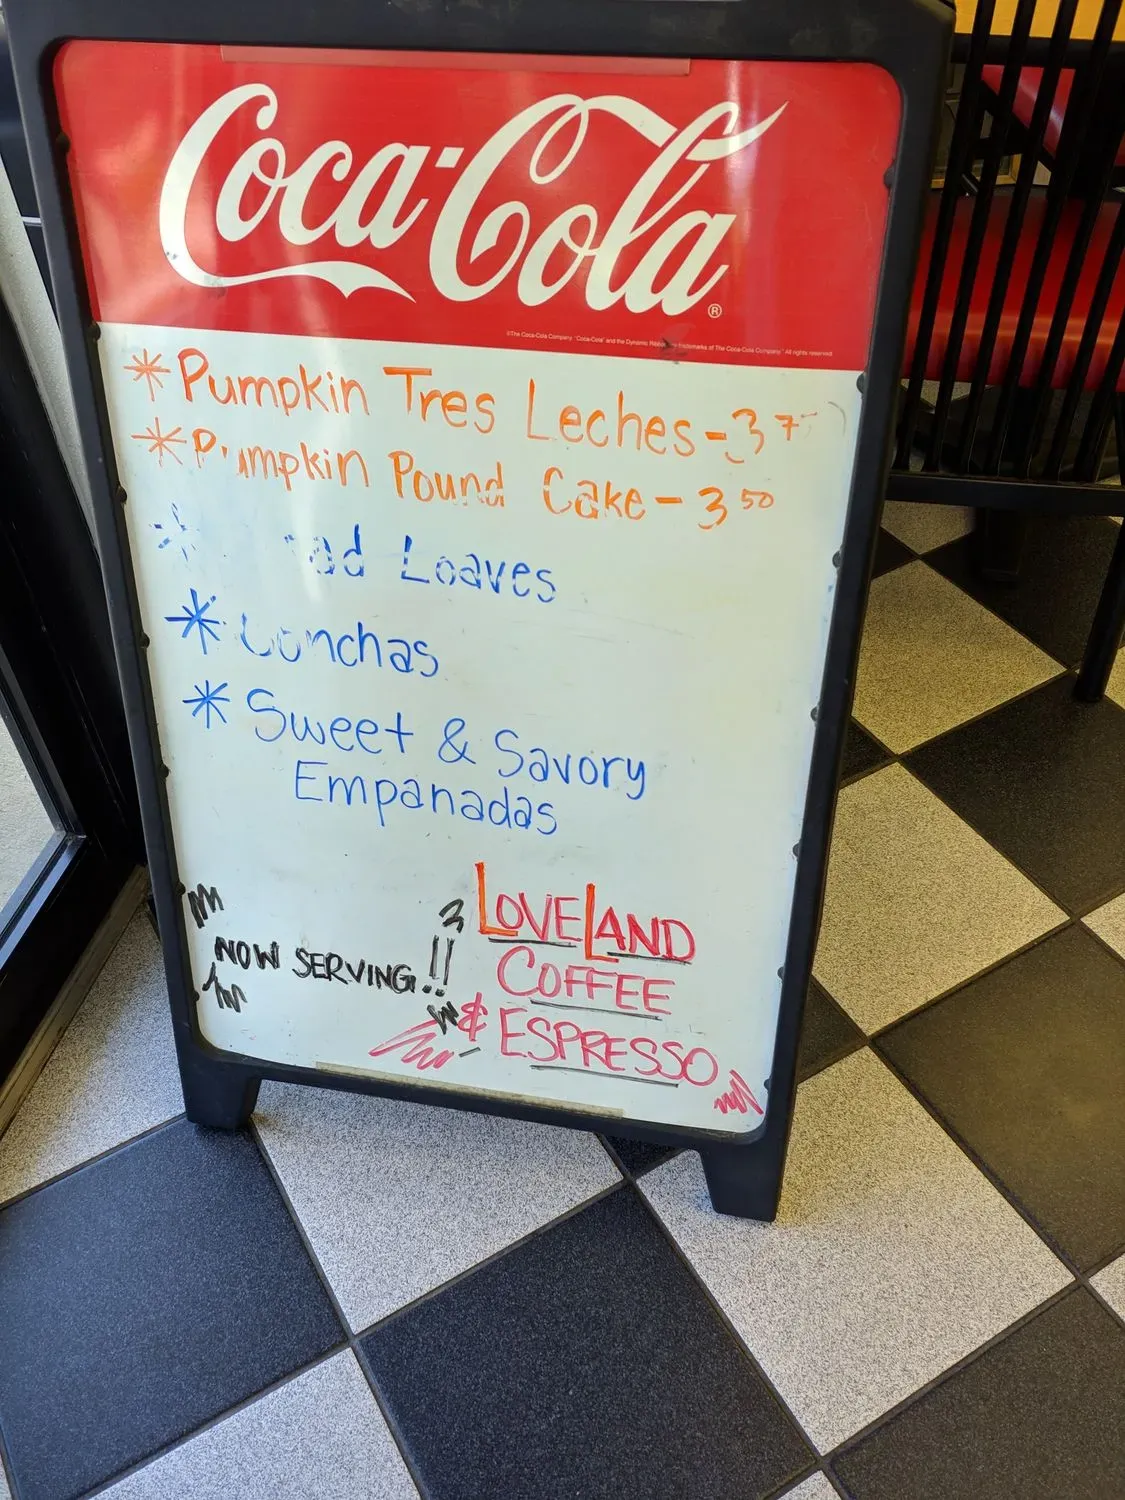 Coca-Cola®
©The Coca-Cola Company "Coca-Cola" and the Dynamic Ribbon trademarks of The Coca-Cola Company All rights reserved
* Pumpkin Tres Leches - 3
* Pumpkin Pound Cake - 3 50
* Loaves
* Conchas
* Sweet & Savory
Empanadas
NOW SERVING!!
LOVELAND
COFFEE
& ESPRESSO